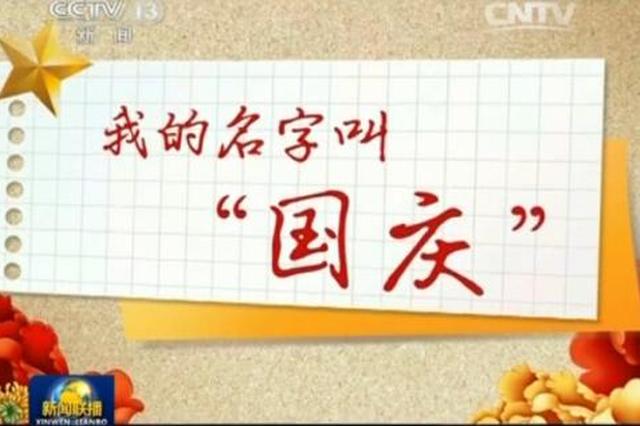 CCTV 13
CNTV
新闻
我的名字叫
“国庆”
新闻联播
XINWEN LIANBO